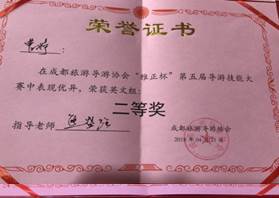 荣誉证书
在成都旅游导游协会“雅正杯”第五届导游技能大
赛中表现优异，荣获英文组：
二等奖
指导老师
成都旅游导游协会